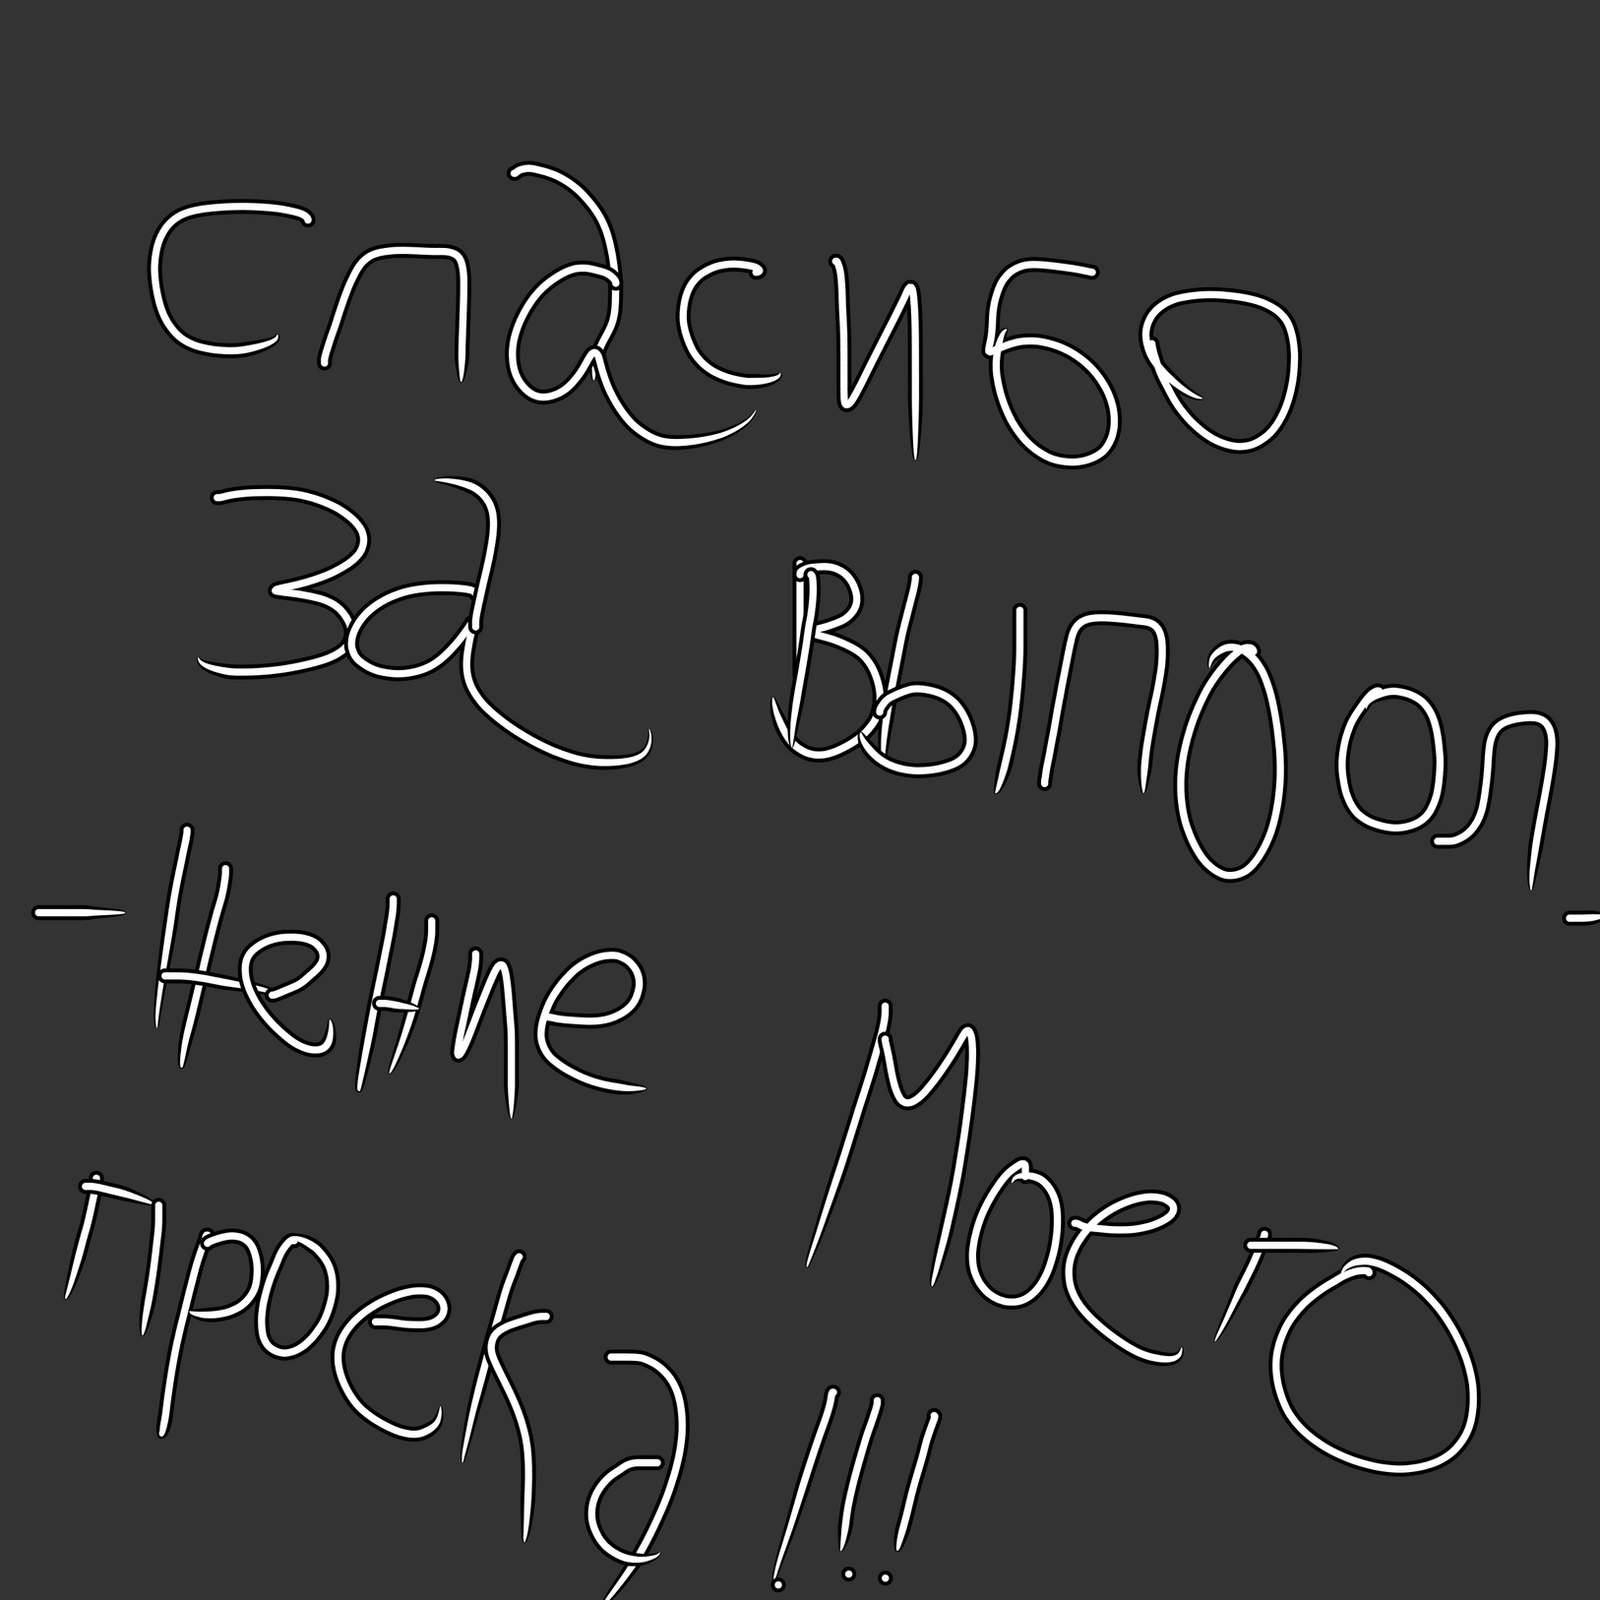 спасибо
за выпоол-
-Нение Моего
проека!!!